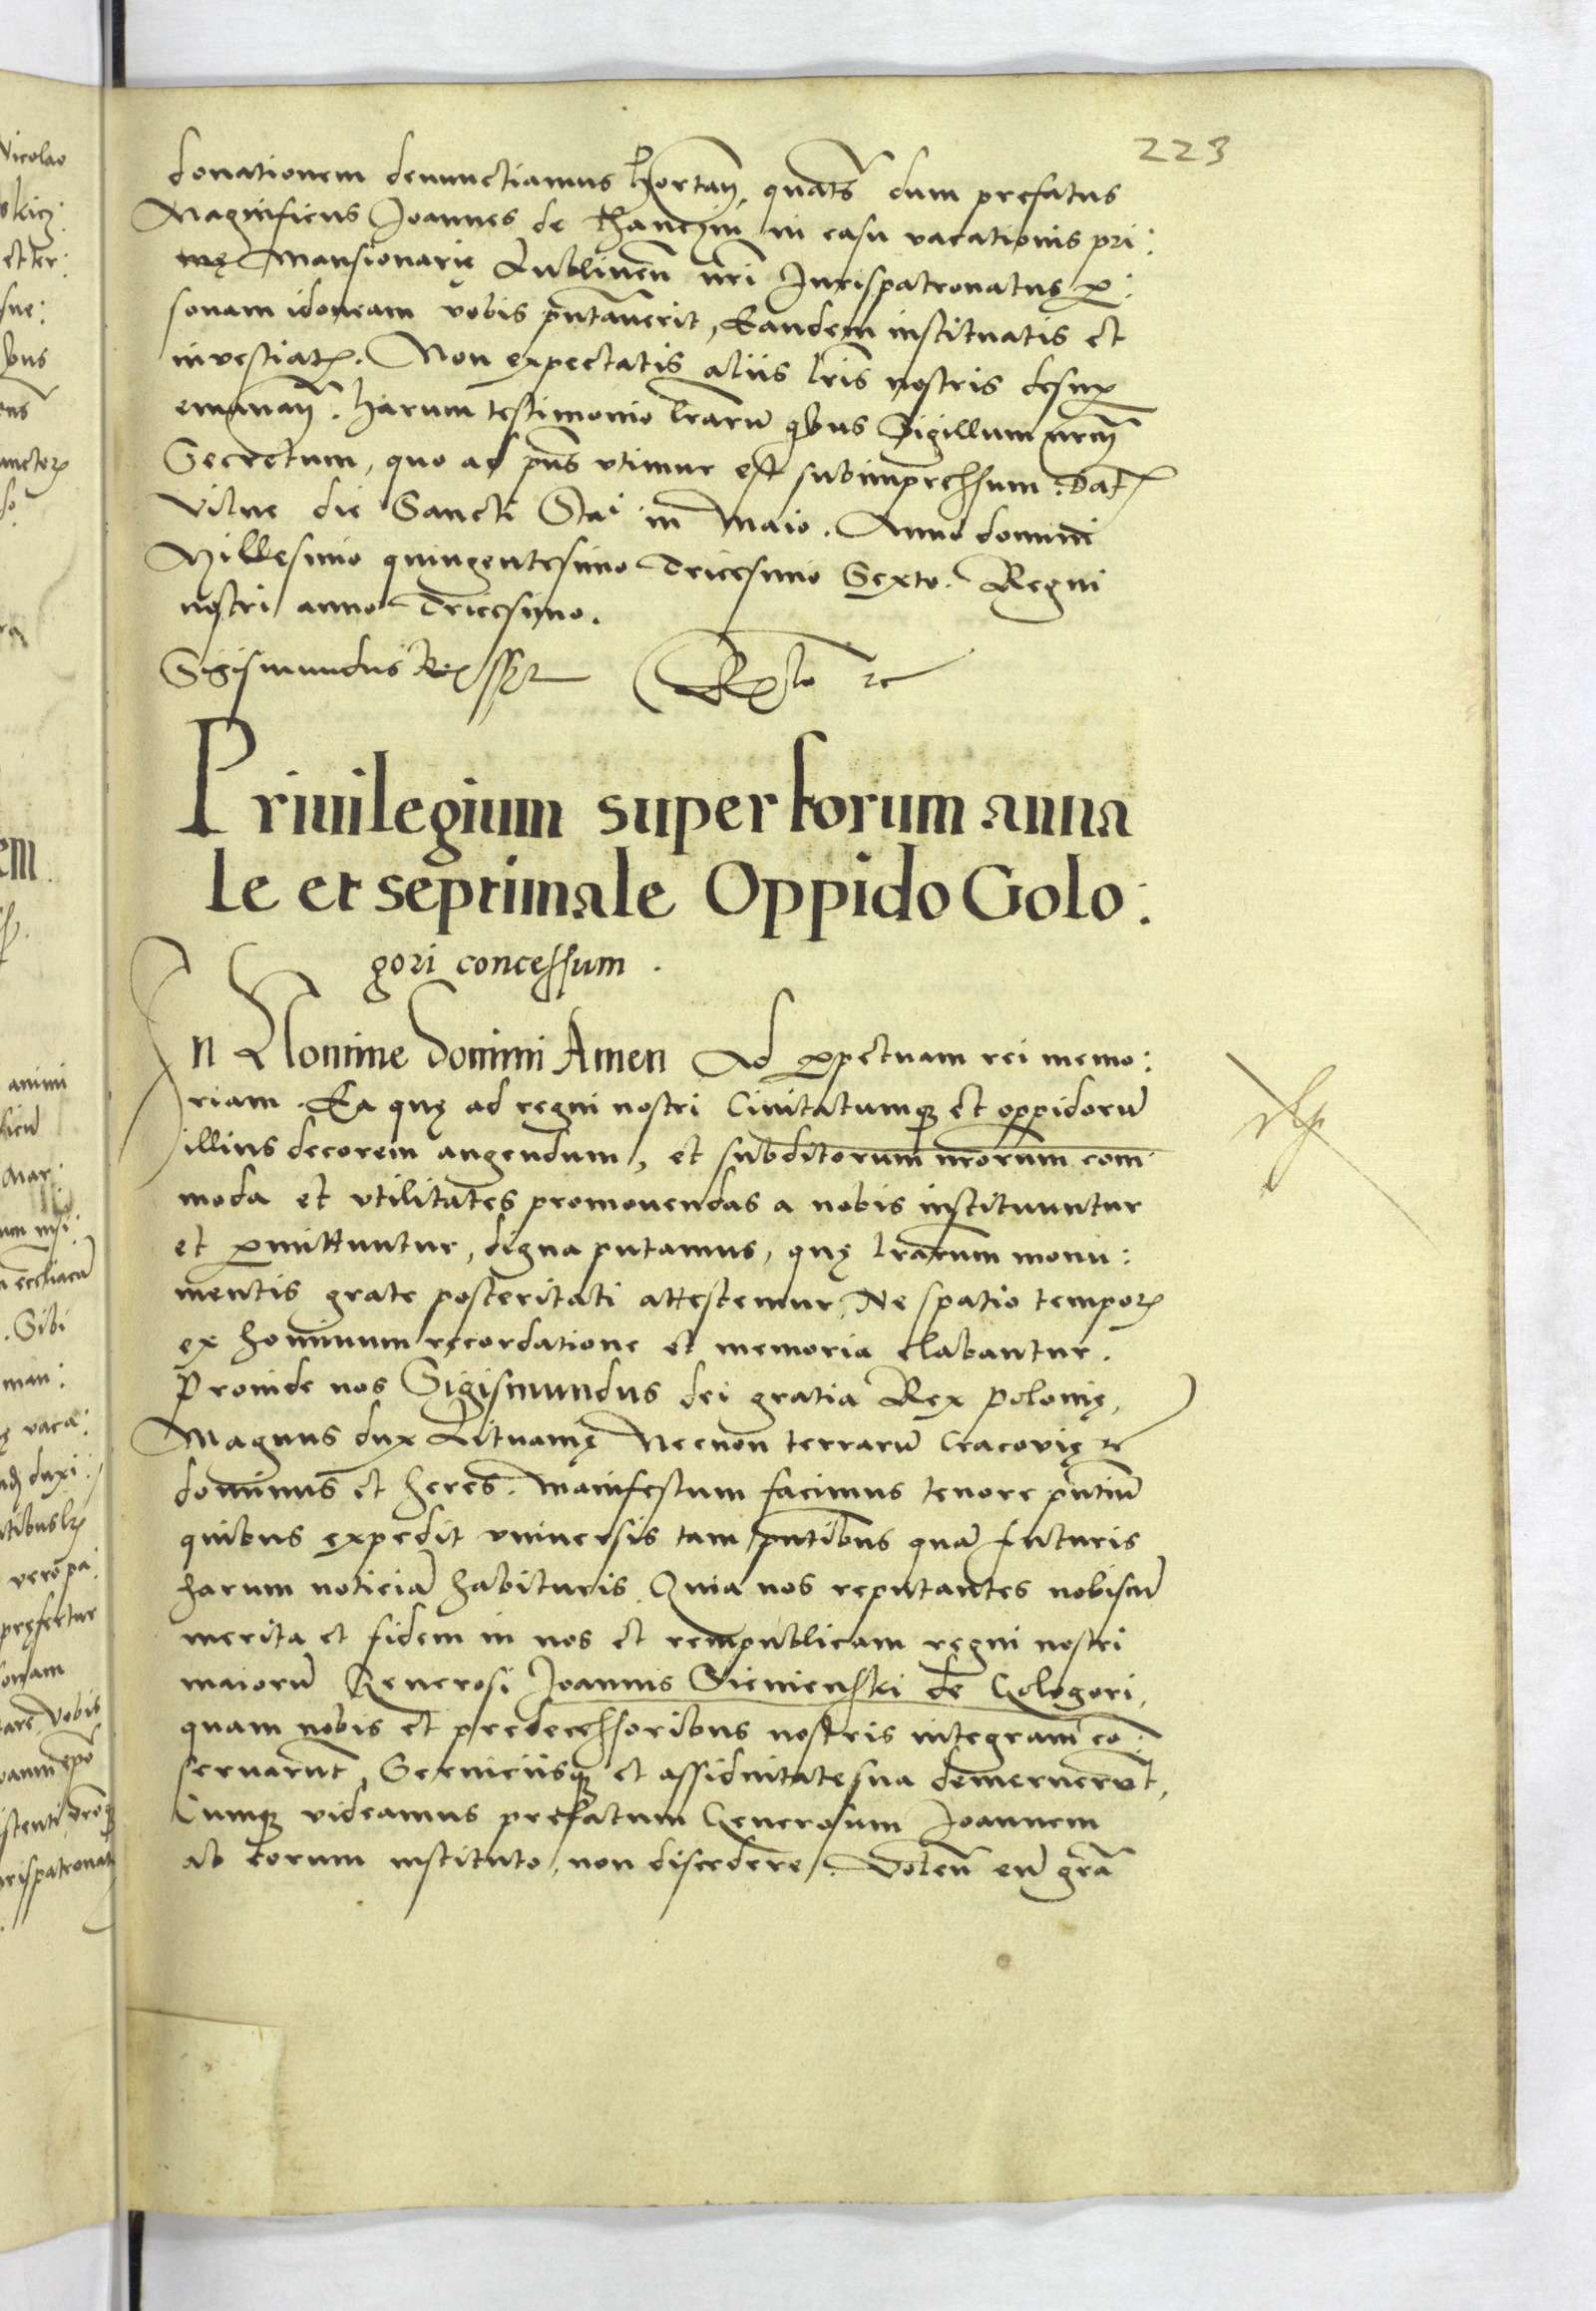 223
donationem denunctiamus hortan̄, quatꝰ dum prefatus
Magnificus Joannes de Thanczin in casu vacationis pri:
mę Mansionarię Lublinen̄ nr̄i Jurispatronatus ꝑ:
sonam idoneam vobis pn̄tauerit, Eandem instituatis et
inuestiatꝭ. Non expectatis aliis lr̄is nostris desuꝑ
emanan̄. Harum testimonio lr̄arū qͥbus Sigillum nrm̄
Secretum, quo ad pn̄s vtimur est subimpressum. Datꝭ
Vilne die Sancti Stai in Maio. Anno domini
Millesimo quingentesimo Tricesimo Sexto. Regni
nostri anno Tricesimo.
Sigismundus Rex sst
Priuilegium super forum annа
le et septimale Oppido Golo:
gori concessum.
In Nomine Domini Amen Ad ꝑpetuam rei memo:
riam. Ea quę ad regni nostri Ciuitatumqꝫ et oppidorū
illius decorem augendum, et subditorum nr̄orum com̄
moda et vtilitates promouendas a nobis instituuntur
et ꝑmittuntur, digna putamus, quę lr̄arum monu:
mentis grate posteritati attestemur, Ne spatio temporꝭ
ex hominum recordatione et memoria elabantur.
Proinde nos Sigismundus dei gratia Rex Polonię,
Magnus dux Lituanię Necnon terrarū Cracovię ꝛc
dominus et heres. Manifestum facimus tenore pn̄tiū
quibus expedit vniuersis tam pn̄tibus quā futuris
harum noticiā habituris. Quia nos reputantes nobiscū
merita et fidem in nos et rempublicam regni nostri
maiorū Generosi Joannis Sienienski de Gologori,
quam nobis et predecessoribus nostris integram cō:
seruarunt, Seruiciisqꝫ et assiduitate sua demeruerūt,
Cumqꝫ videamus prefatum Generosum Joannem
ab eorum instituto, non discedere. Volen̄ eū gr̄a